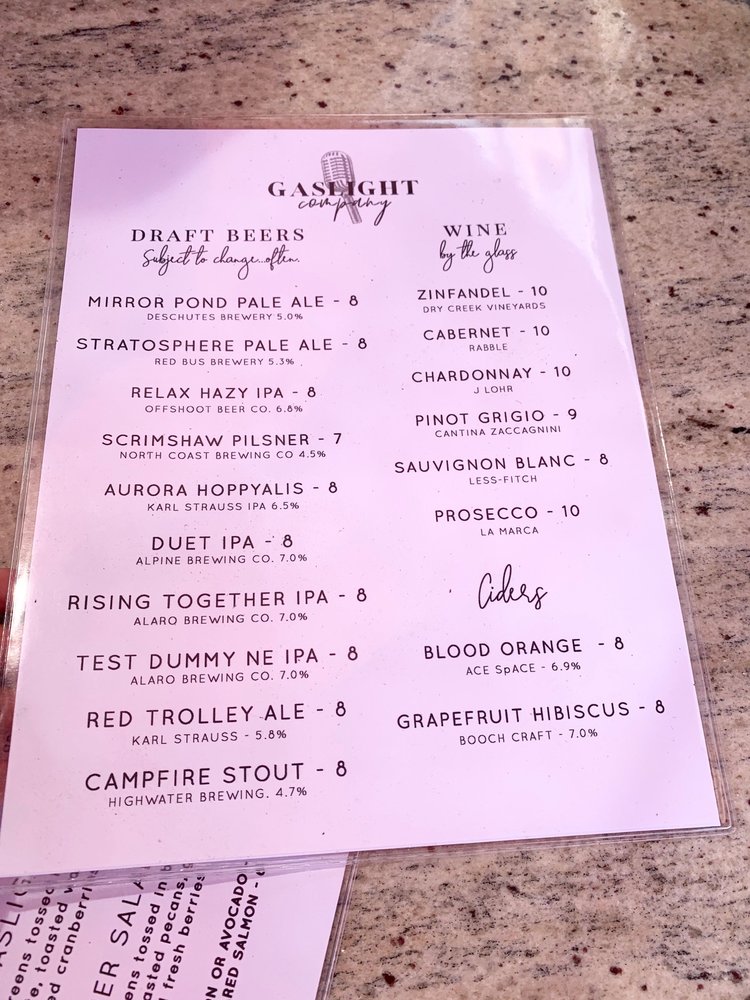 GASLIGHT
company
DRAFT BEERS
Subject to change...often.
MIRROR POND PALE ALE - 8
DESCHUTES BREWERY 5.0%
STRATOSPHERE PALE ALE - 8
RED BUS BREWERY 5.3%
RELAX HAZY IPA - 8
OFFSHOOT BEER CO. 6.8%
SCRIMSHAW PILSNER - 7
NORTH COAST BREWING CO 4.5%
AURORA HOPPYALIS - 8
KARL STRAUSS IPA 6.5%
DUET IPA - 8
ALPINE BREWING CO. 7.0%
RISING TOGETHER IPA - 8
ALARO BREWING CO. 7.0%
TEST DUMMY NE IPA - 8
ALARO BREWING CO. 7.0%
RED TROLLEY ALE - 8
KARL STRAUSS - 5.8%
CAMPFIRE STOUT - 8
HIGHWATER BREWING. 4.7%
WINE
by the glass
ZINFANDEL - 10
DRY CREEK VINEYARDS
CABERNET - 10
RABBLE
CHARDONNAY - 10
J LOHR
PINOT GRIGIO - 9
CANTINA ZACCAGNINI
SAUVIGNON BLANC - 8
LESS-FITCH
PROSECCO - 10
LA MARCA
Ciders
BLOOD ORANGE - 8
ACE SpACE - 6.9%
GRAPEFRUIT HIBISCUS - 8
BOOCH CRAFT - 7.0%
toasted
cranberri
ER SALA
tossed in b
asted pecans,
fresh berries
ON OR AVOCADO -
RED SALMON -